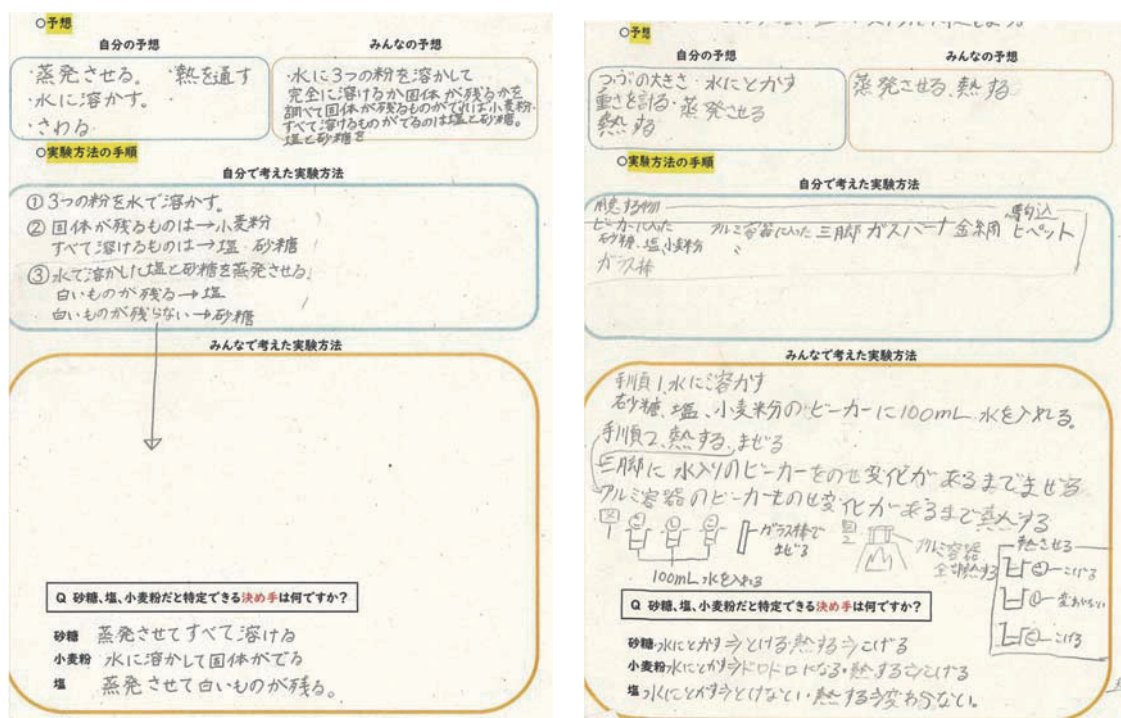 ○予想
自分の予想
みんなの予想
・蒸発させる。 ・熱を通す
・水に溶かす。
・さわる
・水に3つの粉を溶かして
完全に溶けるか固体が残るかを
調べて固体が残るものがでれば小麦粉。
すべて溶けるものがでるのは塩と砂糖。
塩と砂糖を
○実験方法の手順
自分で考えた実験方法
①3つの粉を水で溶かす。
②固体が残るものは→小麦粉
すべて溶けるものは→塩・砂糖
③水で溶かした塩と砂糖を蒸発させる。
白いものが残る→塩
白いものが残らない→砂糖
みんなで考えた実験方法
Q 砂糖、塩、小麦粉だと特定できる決め手は何ですか?
砂糖 蒸発させてすべて溶ける
小麦粉 水に溶かして固体がでる
塩 蒸発させて白いものが残る。
○予想
自分の予想
みんなの予想
つぶの大きさ・水にとかす
重さを計る・蒸発させる
熱する
蒸発させる、熱する
○実験方法の手順
自分で考えた実験方法
用意する物
ビーカーに入った
砂糖、塩、小麦粉
アルミ容器に入った 三脚 ガスバーナ 金網 駒込ピペット
ガラス棒
みんなで考えた実験方法
手順1.水に溶かす
砂糖、塩、小麦粉のビーカーに100mL水を入れる。
手順2.熱する、まぜる
三脚に水入りのビーカーをのせ変化があるまでまぜる
アルミ容器のビーカーものせ変化があるまで熱する
図1
ガラス棒で
まぜる
100mL水を入れる
図2
アルミ容器
全部熱する
こげる
変わらない
こげる
Q 砂糖、塩、小麦粉だと特定できる決め手は何ですか?
砂糖 水にとかす⇒とける・熱する⇒こげる
小麦粉 水にとかす⇒ドロドロになる・熱する⇒こげる
塩 水にとかす⇒とけない・熱する⇒変わらない。